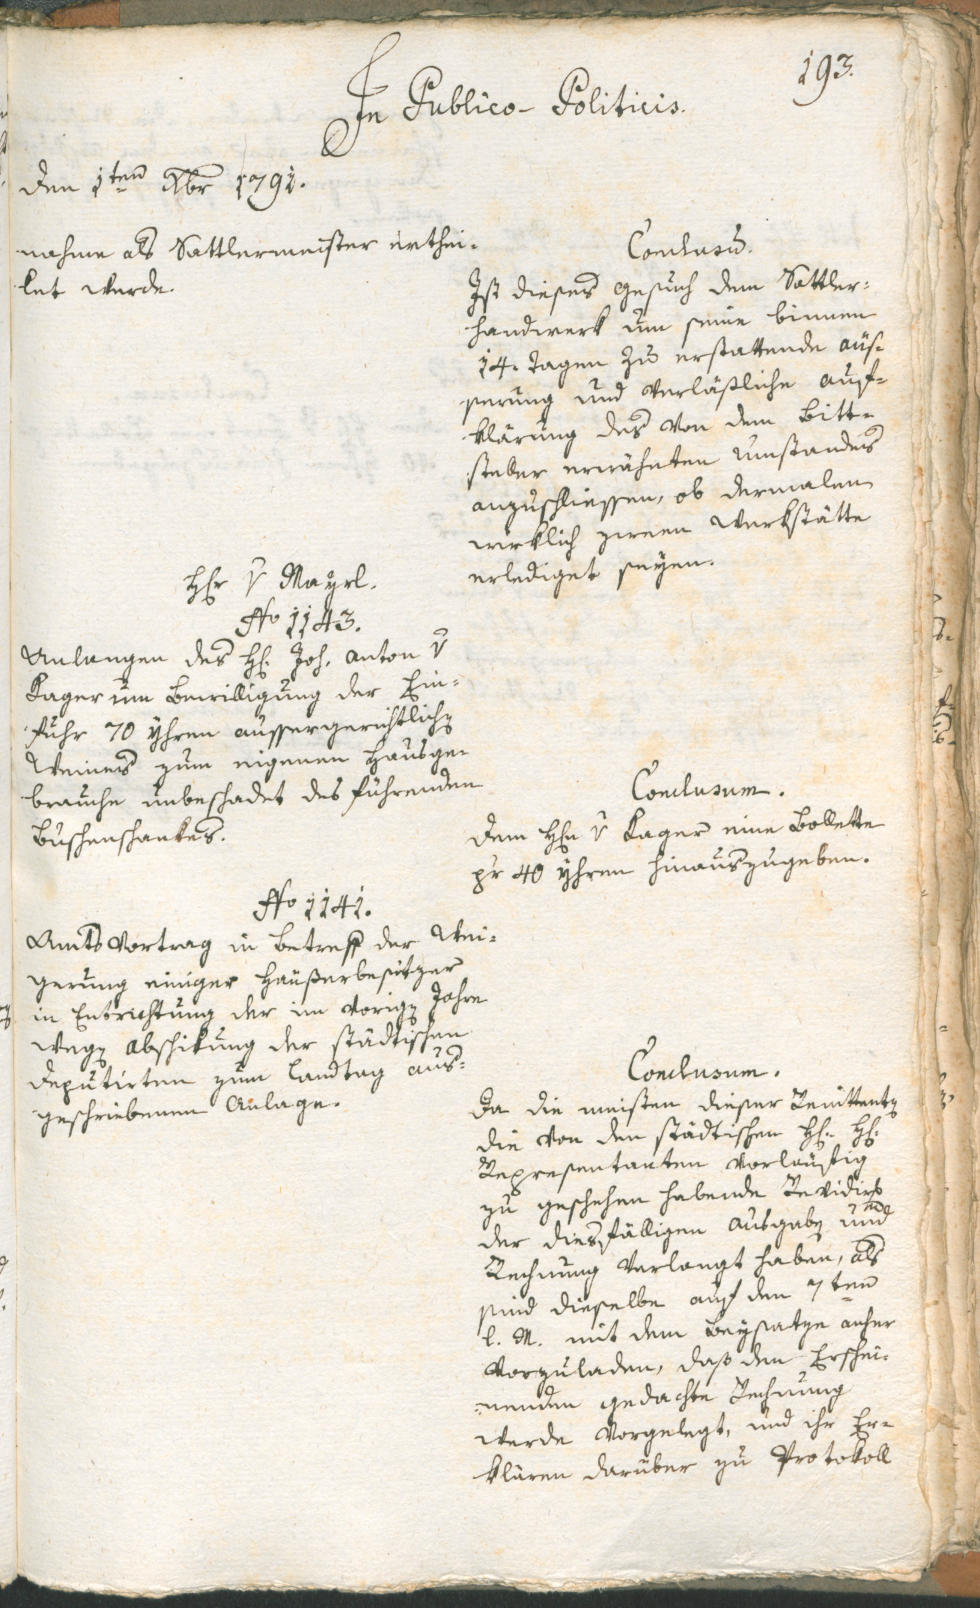 193.
In Publico-Politicis.
den 1ten Xbr 1791.
nahme als Sattlermeister erthei-
let werde.
Conclusũ.
Ist dieses Gesuch dem Sattler-
handwerk um seine binnen
14. Tagen zu erstattende äus-
serung und verläßliche auf-
klärung des von dem Bitt-
steller erwähnten Umstandes
anzuschliessen, ob dermalen
wirklich zween Werkstätte
erlediget seyen.
Hr v Mayrl.
No 1143.
Anlangen des H. Joh. Anton v
Kager um Bewilligung der Ein-
fuhr 70 Yhren aussergerichtlichen
Weines zum eigenen Hausge-
brauche unbeschadet des führenden
Buschenschankes.
Conclusum.
Dem Hrn v Kager eine Bollette
pr 40 Yhren hinauszugeben.
No 1141.
Amts Vortrag in Betreff der Wei-
gerung einiger Häußerbesitzer
in Entrichtung der im vorigen Jahre
wegen Abschikung der städtischen
Deputirten zum Landtag aus-
geschriebenen Anlage.
Conclusum.
Da die meisten dieser Renittenten
die von den städtischen H. H.
Representanten vorläufig
zu geschehen habende
der diesfälligen Ausgaben und
Rechnung verlangt haben, als
sind dieselbe auf den 7ten
l. M. mit dem Beysatze anher
vorzuladen, daß den Erschei-
nenden gedachte Rechnung
werde vorgelegt, und ihr Er-
klären darüber zu Protokoll